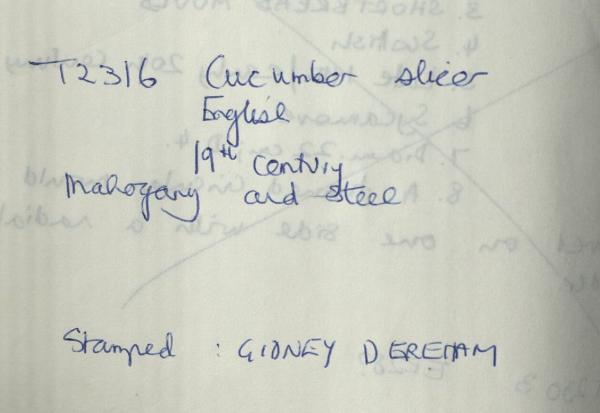 T2316 Cucumber slicer
English
19th century
Mahogany and steel
Stamped : GIDNEY DEREHAM